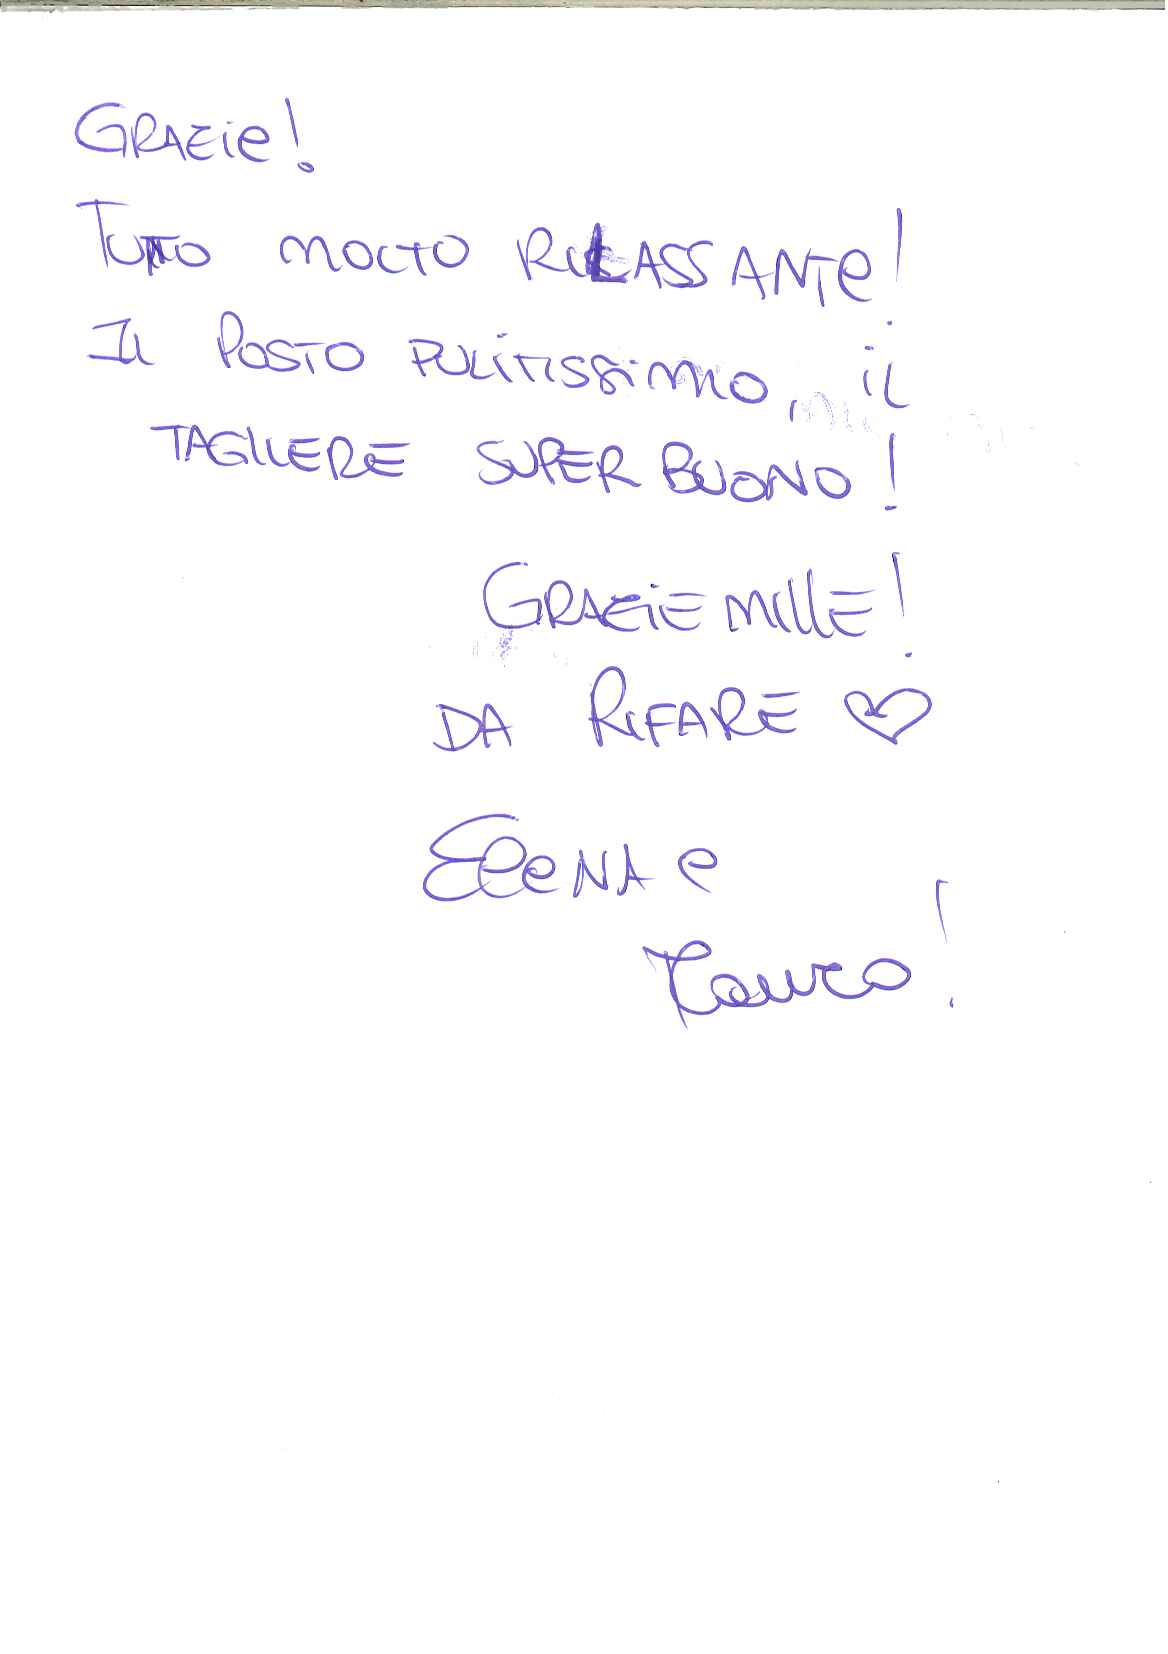 Grazie!
Tutto molto rilassante!
Il posto pulitissimo, il
tagliere super buono!
Grazie mille!
da rifare ♡
Elena e
!